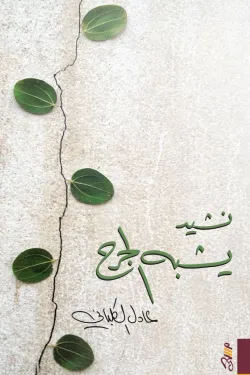 نشيد
يشبه الجرح
عادل الكلباني